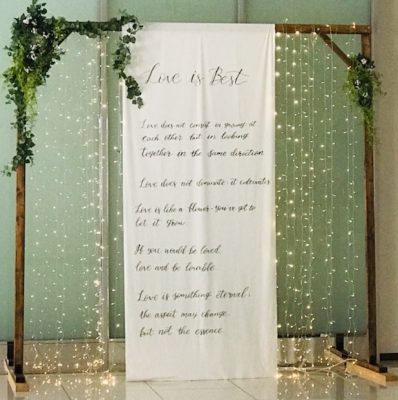 Love is Best
Love does not consist in gazing at
each other but in looking
together in the same direction
Love does not dominate; it cultivates
Love is like a flower-you've got to
let it grow.
If you would be loved,
love and be lovable.
Love is something eternal;
the aspect may change,
but not the essence.